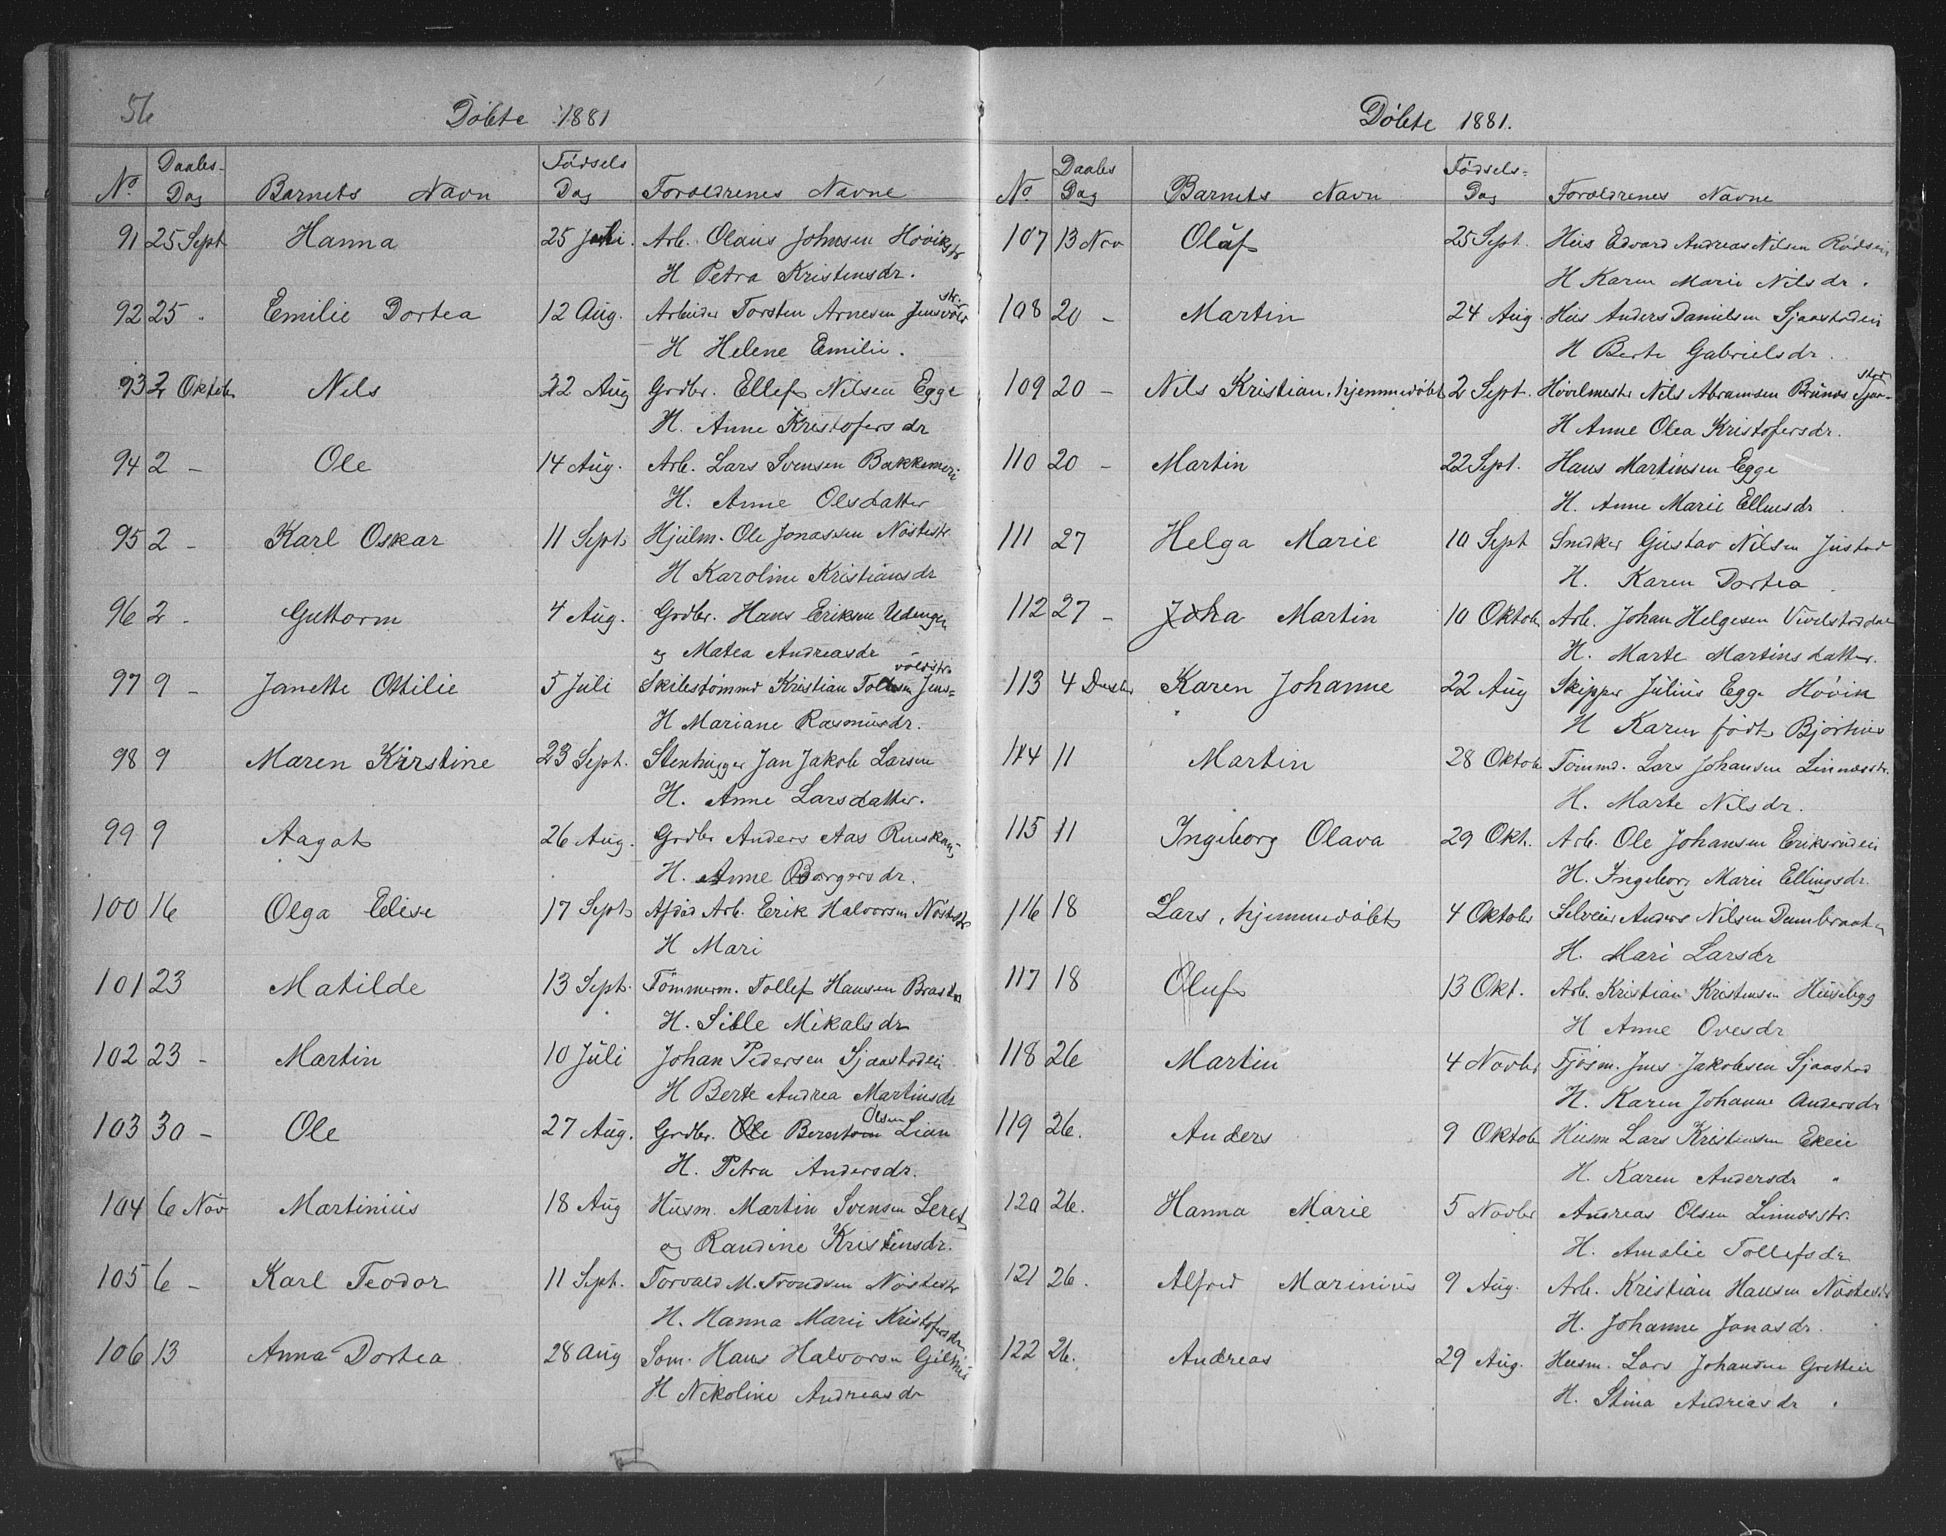 56
Döbte 1881
No Daabs-Dag Barnets Navn Fødsels Dag Forældrenes Navne
91 25 Sept Hanna 25 Juli. Arb. Olaus Johnsen Høvikstr
H Petra Kristensdr.
92 25 - Emilie Dortea 12 Aug. Arbeider Torsten Arnesen Jensvoldstr.
H Helene Emilie.
93 2 Oktober Nels 22 Aug Grdbr. Ellef Nilsen Egge
H. Anne Kristofersdr
94 2 - Ole 14 Aug. Arb. Lars Svensen
H. Anne Olsdatter
95 2 - Karl Oskar 11 Sept. Hjulm. Ole Jonassen Nöstestr
H Karoline Kristiansdr
96 2 - Guttorm 4 Aug. Grdbr. Hans Eriksen Udengen
og Matea Andreasdr
97 9 - Janette Ottilie 5 Juli Kristian Tollefsen Jensvoldstr
H Mariane Rasmusdr.
98 9 Maren Kirstine 23 Sept. Stenhugger Jan Jakob Larsen
H. Anne Larsdatter.
99 9 Aagot 26 Aug. Grdbr Anders Aas
H. Anne Borgersdr.
100 16 Olga Elise 17 Sept. Afdød Arb. Erik Halvorsen Nöstestr
H Mari
101 23 Matilde 13 Sept. Tömmerm. Tollef Hansen
H. Sille Mikalsdr
102 23 - Martin 10 Juli Johan Pedersen Sjaastadei
H Berte Andrea Martinsdr
103 30 - Ole 27 Aug. Grdbr. Ole Berntsen Olsen Lian
H. Petra Andersdr.
104 6 Nov Martinius 18 Aug Husm. Martin Svensen
og Randine Kristensdr.
105 6 - Karl Teodor 11 Sept. Torvald M. Trondsen Nöstestr
H. Hanna Marie Kristofersdr
106 13 Anna Dortea 28 Aug Søm. Hans Halvorsen Gilhus
H Nikoline Andreasdr
Döbte 1881.
No Daabs Dag Barnets Navn Fødsels-Dag Forældrenes Navne
107 13 Nov Olaf 25 Sept. Hus Edvard Andreas Nilsen Rødsei
H Karen Marie Nilsdr.
108 20 - Martin 24 Aug. Hus Anders Danielsen Sjaastadei
H Berte Gabrielsdr.
109 20 - Nils Kristian, hjemmedøbt 2 Sept. Høvelmester Nils Abramsen
H Anne Olea Kristofersdr.
110 20 - Martin 22 Sept. Hans Martinsen Egge
H. Anne Marie Ellensdr
111 27 Helga Marie 10 Sept Snedker Gustav Nilsen Justad
H. Karen Dortea
112 27 - Martin 10 Oktob Arb. Johan Helgesen
H. Marte Martinsdatter.
113 4 Karen Johanne 22 Aug Skipper Julius Egge Høvik
H Karen født
114 11 Martin 28 Oktob Tømmd. Lars Johansen Linnesstr.
H. Marte Nilsdr.
115 11 Ingeborg Olava 29 Okt. Arb. Ole Johansen Eriksrudei
H. Ingeborg Marie Ellingsdr.
116 18 Lars, hjemmedøbt 4 Oktober Selveier Anders Nilsen
H. Mari Larsdr
117 18 Oluf 13 Okt. Arb. Kristian Kristensen
H Anne Ovesdr
118 26 Martin 4 Novbr Fjøsm. Jens Jakobsen Sjaastad
H. Karen Johanne Andersdr
119 26. Anders 9 Oktob Husm Lars Kristensen Ekeie
H. Karen Andersdr
120 26. Hanna Marie 5 Novbr Andreas Olsen Linnesstr.
H. Amalie Tollefsdr
121 26. Alfred Marinius 9 Aug. Arb. Kristian Hansen Nöstestr
H. Johanne Jonasdr.
122 26. Andreas 29 Aug. Husm. Lars Johansen
H. Stina Andreasdr